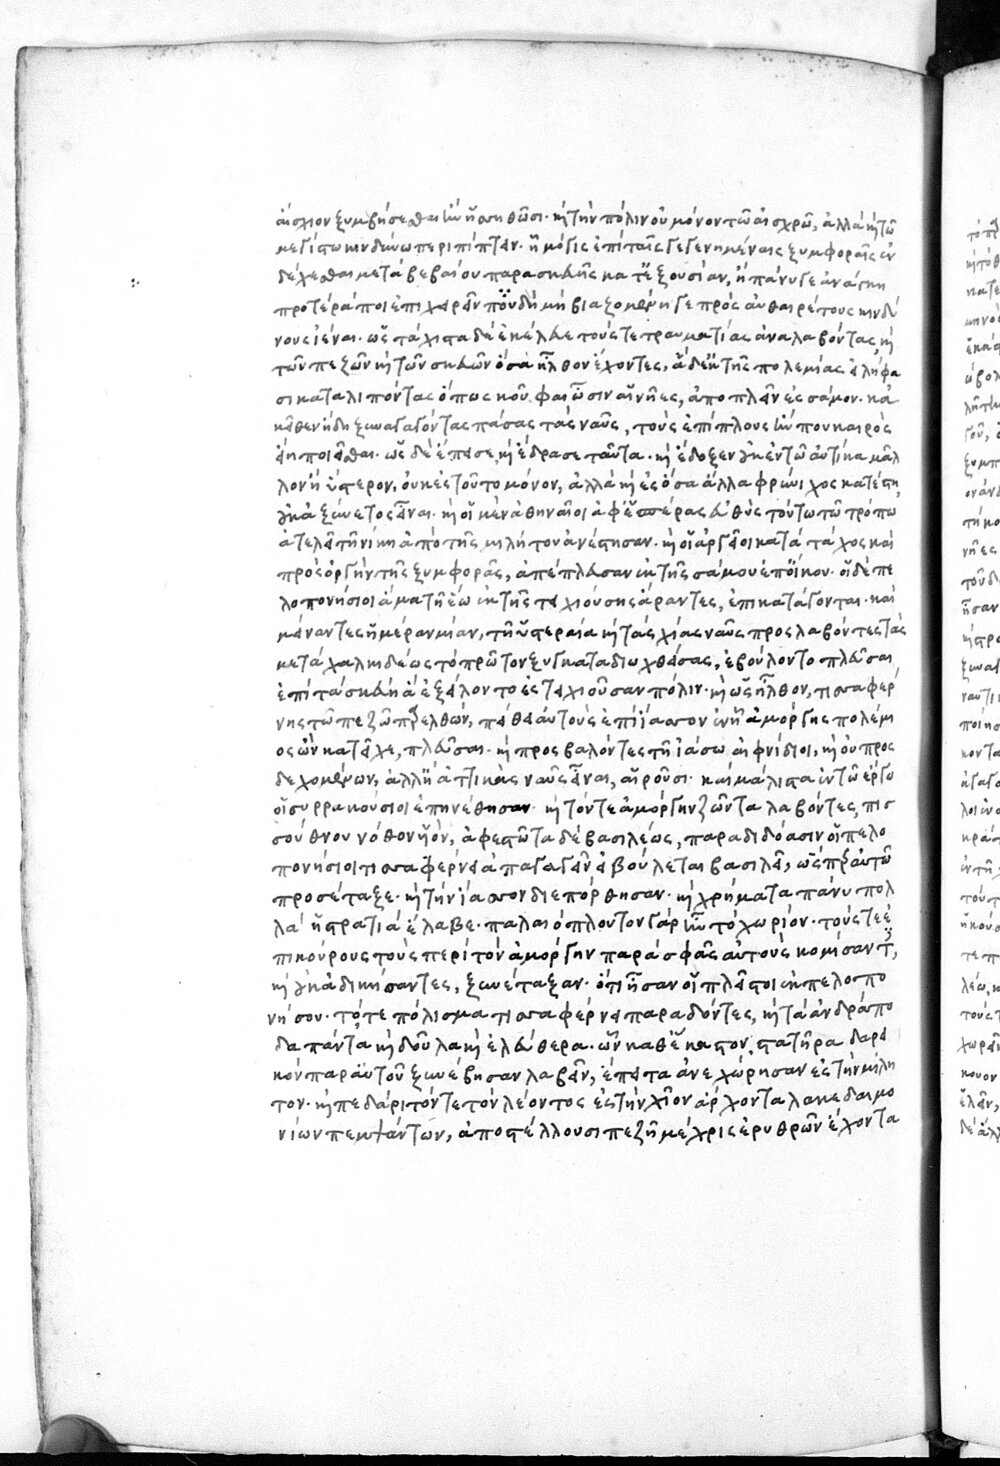 αἴσχιον ξυμβήσεσθαι ἢν ἡσσηθῶσι· καὶ τὴν πόλιν οὐ μόνον τῶ αἰσχρῶ, ἀλλὰ καὶ τῶ
μεγίστω κινδύνω περιπίπτειν· ἣ μόλις ἐπὶ ταῖς γεγενημέναις ξυμφοραῖς ἐν
δέχεσθαι μετὰ βεβαίου παρασκευῆς καθ' ἑξουσίαν, ἢ πάνυ γε ἀνάγκη
προτέρα ποι ἐπιχειρεῖν ποῦ δὴ μὴ βιαζομένη γε πρὸς αὐθαιρέτους κινδύ
νους ἰέναι· ὡς τάχιστα δὲ ἐκέλευε τούς τε τραυματίας ἀναλαβόντας, καὶ
τῶν πεζῶν καὶ τῶν σκευῶν ὅσα ἦλθον ἔχοντες, ἃ δ' ἐκ τῆς πολεμίας εἰλήφα
σι καταλιπόντας ὅπως κοῦφαι ὦσιν αἱ νῆες, ἀποπλεῖν ἐς σάμον· κἀ
κεῖθεν ἤδη ξυναγαγόντας πάσας τὰς ναῦς, τοὺς ἐπίπλους ἤν που καιρὸς
ἦ ποιεῖσθαι· ὡς δὲ ἔπεισε, καὶ ἔδρασε ταῦτα· καὶ ἔδοξεν οὐκ ἐν τῶ αὐτίκα μᾶλ
λον ἢ ὕστερον, οὐκ ἐς τοῦτο μόνον, ἀλλὰ καὶ ἐς ὅσα ἄλλα φρύνιχος κατέστη,
οὐκ ἀξύνετος εἶναι· καὶ οἱ μὲν ἀθηναῖοι ἀφ' ἑσπέρας εὐθὺς τούτω τῶ τρόπω
ἀτελεῖ τῆ νίκη ἀπὸ τῆς μιλήτου ἀνέστησαν· καὶ οἱ ἀργεῖοι κατὰ τάχος καὶ
πρὸς ὀργὴν τῆς ξυμφορᾶς, ἀπέπλευσαν ἐκ τῆς σάμου ἐπ' οἴκου· οἱ δὲ πε
λοπονήσιοι ἅμα τῆ ἕω ἐκ τῆς τειχιούσης ἄραντες, ἐπικατάγονται· καὶ
μείναντες ἡμέραν μίαν, τῆ ὑστεραία καὶ τὰς χίας ναῦς προσλαβόντες τὰς
μετὰ χαλκιδέως τὸ πρῶτον ξυγκαταδιωχθείσας, ἐβούλοντο πλεῦσαι
ἐπὶ τὰ σκεύη ἃ ἐξείλοντο ἐς τειχιοῦσαν πάλιν· καὶ ὡς ἦλθον, τισσαφέρ
νης τῶ πεζῶ παρελθών, πείθει αὐτοὺς ἐπὶ ἴασσον ἐν ᾗ ἀμόργης πολέμι
ος ὢν κατεῖχε, πλεῦσαι· καὶ προσβαλόντες τῆ ἰάσω αἰφνίδιοι, καὶ οὐ προσ
δεχομένων, ἀλλ' ἢ ἀττικὰς ναῦς εἶναι, αἱροῦσι· καὶ μάλιστα ἐν τῶ ἔργω
οἱ συρρακούσιοι ἐπηνέθησαν· καὶ τόν τε ἀμόργην ζῶντα λαβόντες, πισ
σούθνου νόθον υἱόν, ἀφεστῶτα δὲ βασιλέως, παραδιδόασιν οἱ πελο
πονήσιοι τισσαφέρνει ἀπαγαγεῖν εἰ βούλεται βασιλεῖ, ὥσπερ αὐτῶ
προσέταξε· καὶ τὴν ἴασσον διεπόρθησαν· καὶ χρήματα πάνυ πολ
λὰ ἡ στρατιὰ ἔλαβε· παλαιόπλουτον γὰρ ἦν τὸ χωρίον· τούς τε ἐ
πικούρους τοὺς περὶ τὸν ἀμόργην παρὰ σφᾶς αὐτοὺς κομίσαντες,
καὶ οὐκ ἀδικήσαντες, ξυνέταξαν· ὅτι ἦσαν οἱ πλεῖστοι ἐκ πελοπο
νήσου· τό τε πόλισμα τισσαφέρνει παραδόντες, καὶ τὰ ἀνδράπο
δα πάντα καὶ δοῦλα καὶ ἐλεύθερα· ὧν καθ' ἕκαστον, στατῆρα δαρει
κὸν παρ' αὐτοῦ ξυνέβησαν λαβεῖν, ἔπειτα ἀνεχώρησαν ἐς τὴν μίλη
τον· καὶ πεδάριτόν τε τὸν λέοντος ἐς τὴν χῖον ἄρχοντα λακεδαιμο
νίων πεμψάντων, ἀποστέλλουσι πεζῆ μέχρις ἐρυθρῶν ἔχοντα